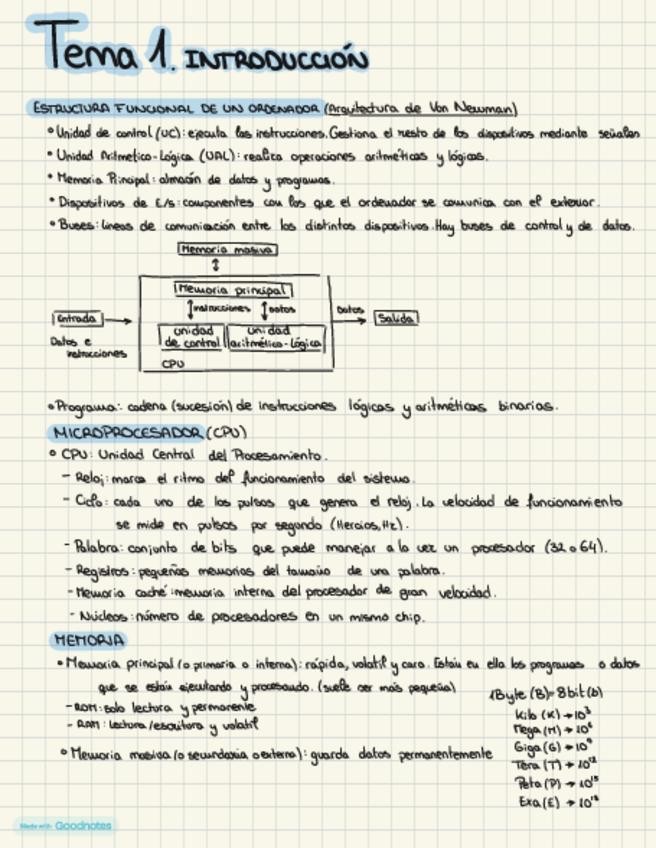 Tema 1. INTRODUCCIÓN
ESTRUCTURA FUNCIONAL DE UN ORDENADOR (Arquitectura de Von Newman)
• Unidad de control (UC): ejecuta las instrucciones. Gestiona el resto de los dispositivos mediante señales
• Unidad Aritmetico-Lógica (UAL): realiza operaciones aritméticas y lógicas.
• Memoria Principal: almacén de datos y programas.
• Dispositivos de E/S: componentes con los que el ordenador se comunica con el exterior.
• Buses: líneas de comunicación entre los distintos dispositivos. Hay buses de control y de datos.
Memoria masiva
Memoria principal
instrucciones Datos
Entrada
Datos e
instrucciones
unidad de control
unidad aritmético-lógica
CPU
Datos
Salida
• Programa: cadena (sucesión) de instrucciones lógicas y aritméticas binarias.
MICROPROCESADOR (CPU)
• CPU: Unidad Central del Procesamiento.
- Reloj: marca el ritmo del funcionamiento del sistema.
- Ciclo: cada uno de los pulsos que genera el reloj. La velocidad de funcionamiento
se mide en pulsos por segundo (Hercios, Hz).
- Palabra: conjunto de bits que puede manejar a la vez un procesador (32 o 64).
- Registros: pequeñas memorias del tamaño de una palabra.
- Memoria caché: memoria interna del procesador de gran velocidad.
- Núcleos: número de procesadores en un mismo chip.
MEMORIA
• Memoria principal (o primaria o interna): rápida, volatil y cara. Están en ella los programas o datos
que se están ejecutando y procesando. (suele ser más pequeña)
- ROM: solo lectura y permanente
- RAM: lectura/escritura y volatil
• Memoria masiva (o secundaria o externa): guarda datos permanentemente
1Byte (B) = 8bit (b)
Kilo (K) → 10³
Mega (M) → 10⁶
Giga (G) → 10⁹
Tera (T) → 10¹²
Peta (P) → 10¹⁵
Exa (E) → 10¹⁸
Made with Goodnotes